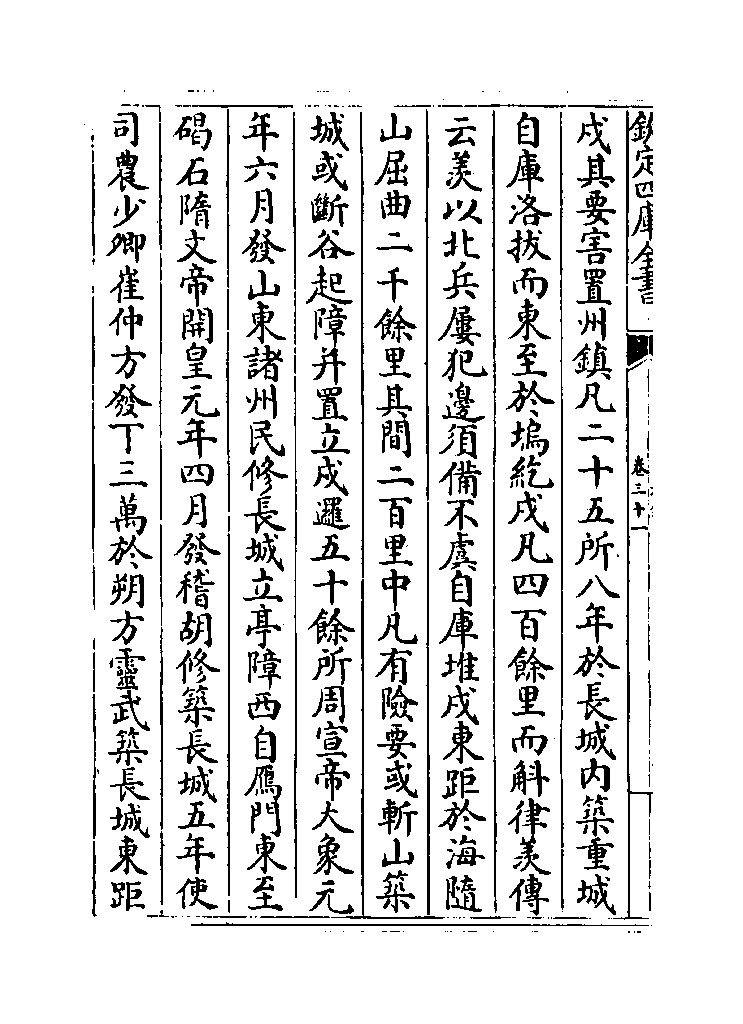 欽定四庫全書
卷三十一
戍其要害置州鎮凡二十五所八年於長城内築重城
自庫洛拔而東至於塢紇戍凡四百餘里而斛律羡傳
云羡以北兵屢犯邊須備不虞自庫堆戍東距於海隨
山屈曲二千餘里其間二百里中凡有險要或斬山築
城或斷谷起障并置立戍邏五十餘所周宣帝大象元
年六月發山東諸州民修長城立亭障西自雁門東至
碣石隋文帝開皇元年四月發稽胡修築長城五年使
司農少卿崔仲方發丁三萬於朔方靈武築長城東距